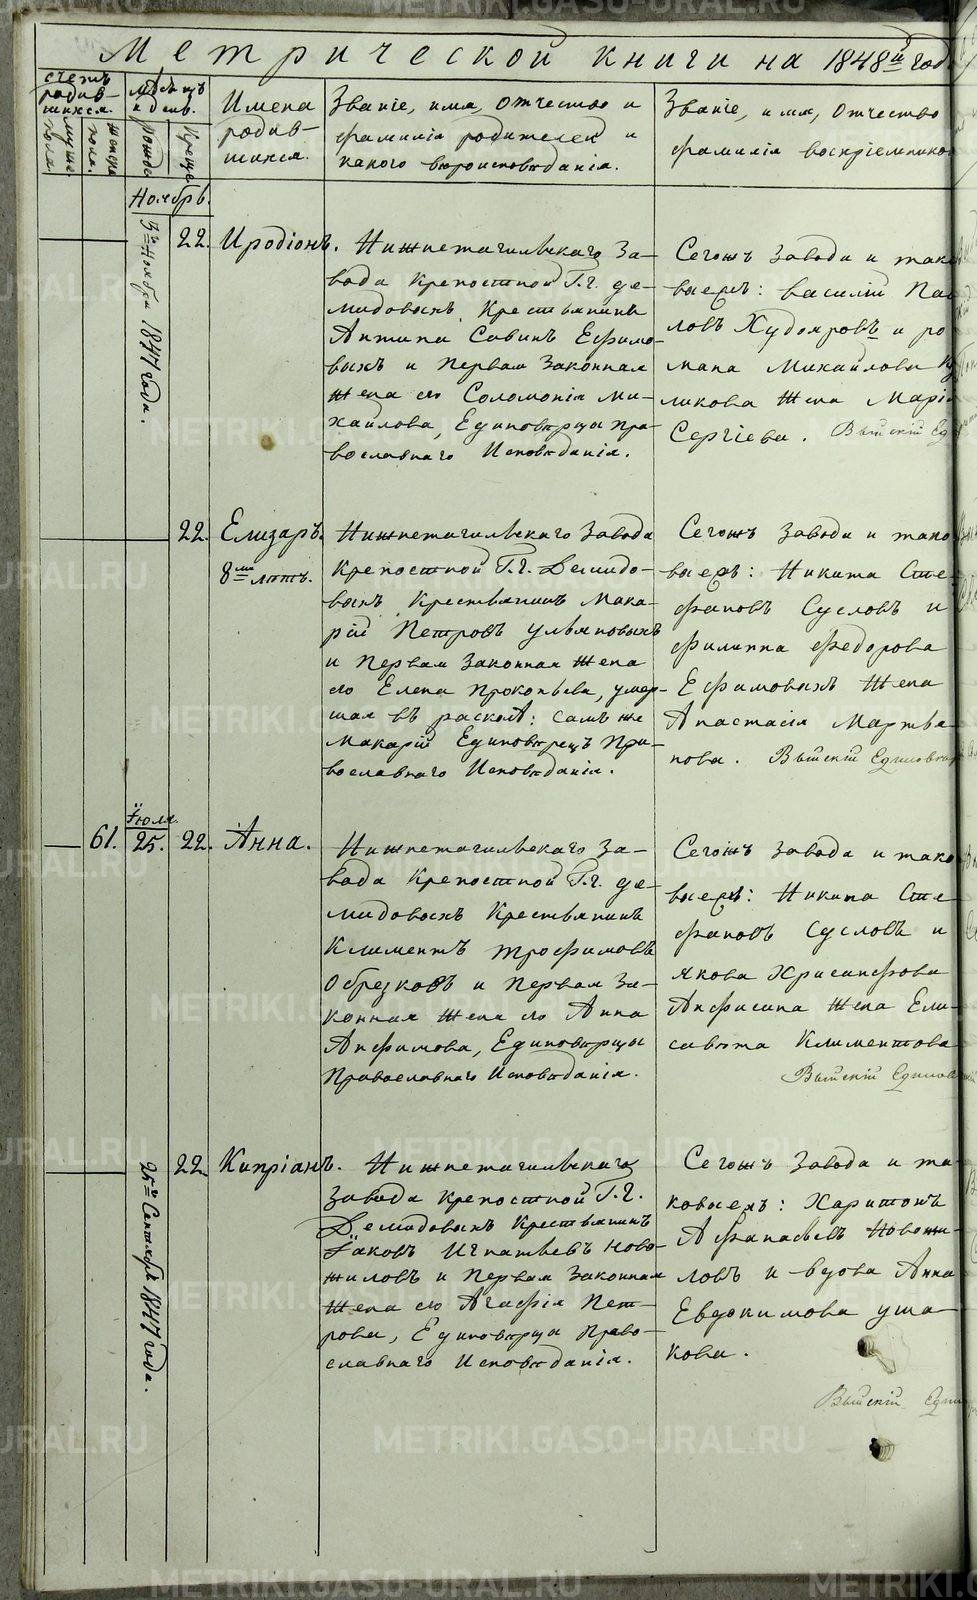 Метрической книги на 1848й год
Счетъ родив-
шихся.
мужеска
пола.
женска
пола.
Месяцъ
и день.
рожде
креще
Имена
родив-
шихся.
Званіе, имя, отчество и
фамилія родителей и
какого вероисповѣданія.
Званіе, имя, отчество
фамилія воспріемнико
Ноябрь.
5го Ноября 1847 года.
22. Иродіонъ.
Нижнетагильскаго За-
вода крепостной Г.г. Де-
мидовыхъ крестьянинъ
Антипа Савинъ Ефимо-
выхъ и первая законная
жена его Соломонія Ми-
хайлова, Единоверцы пра-
вославнаго Исповѣданія.
Сегожъ завода и тако
выежъ: Василій Пав
ловъ Худояровъ и ро
мана Михайлова Ку
ликова жена Марія
Сергіева. Выйскій Ед
22. Елизаръ.
8ми лѣтъ.
Нижнетагильскаго завода
крепостной Г.г. Демидо-
выхъ крестьянинъ Мака-
рій Петровъ Ульяновыхъ
и первая законная жена
его Елена Прокопьева, умер-
шая въ расколѣ: самъ же
Макарій Единоверецъ пра-
вославнаго Исповѣданія.
Сегожъ завода и тако
выежъ: Никита Сте-
фановъ Сусловъ и
Филиппа Федорова
Ефимовыхъ жена
Анастасія Мартья-
нова. Выйскій Единовер
61.
Іюля
25. 22. Анна.
Нижнетагильскаго За-
вода крепостной Г.г. Де-
мидовыхъ крестьянинъ
Климентъ Трофимовъ
Обрезковъ и первая за-
конная жена его Анна
Анфимова, Единоверцы
Православнаго Исповѣданія.
Сегожъ завода и тако
выежъ: Никита Сте-
фановъ Сусловъ и
Якова Хрисанфова
Анфисина жена Ели-
савета Климентова
Выйскій Единов
25го Сентября 1847 года.
22. Кипріанъ.
Нижнетагильскаго
завода крепостной Г.г.
Демидовыхъ крестьянинъ
Іаковъ Игнатьевъ Ново-
жиловъ и первая законная
жена его Агафія Пет-
рова, Единоверцы Право-
славнаго Исповѣданія.
Сегожъ завода и та-
ковыежъ: Харитонъ
Афанасьевъ Новожи-
ловъ и вдова Анна
Евдокимова Уша-
кова.
Выйскій Един
METRIKI.GASO-URAL.RU